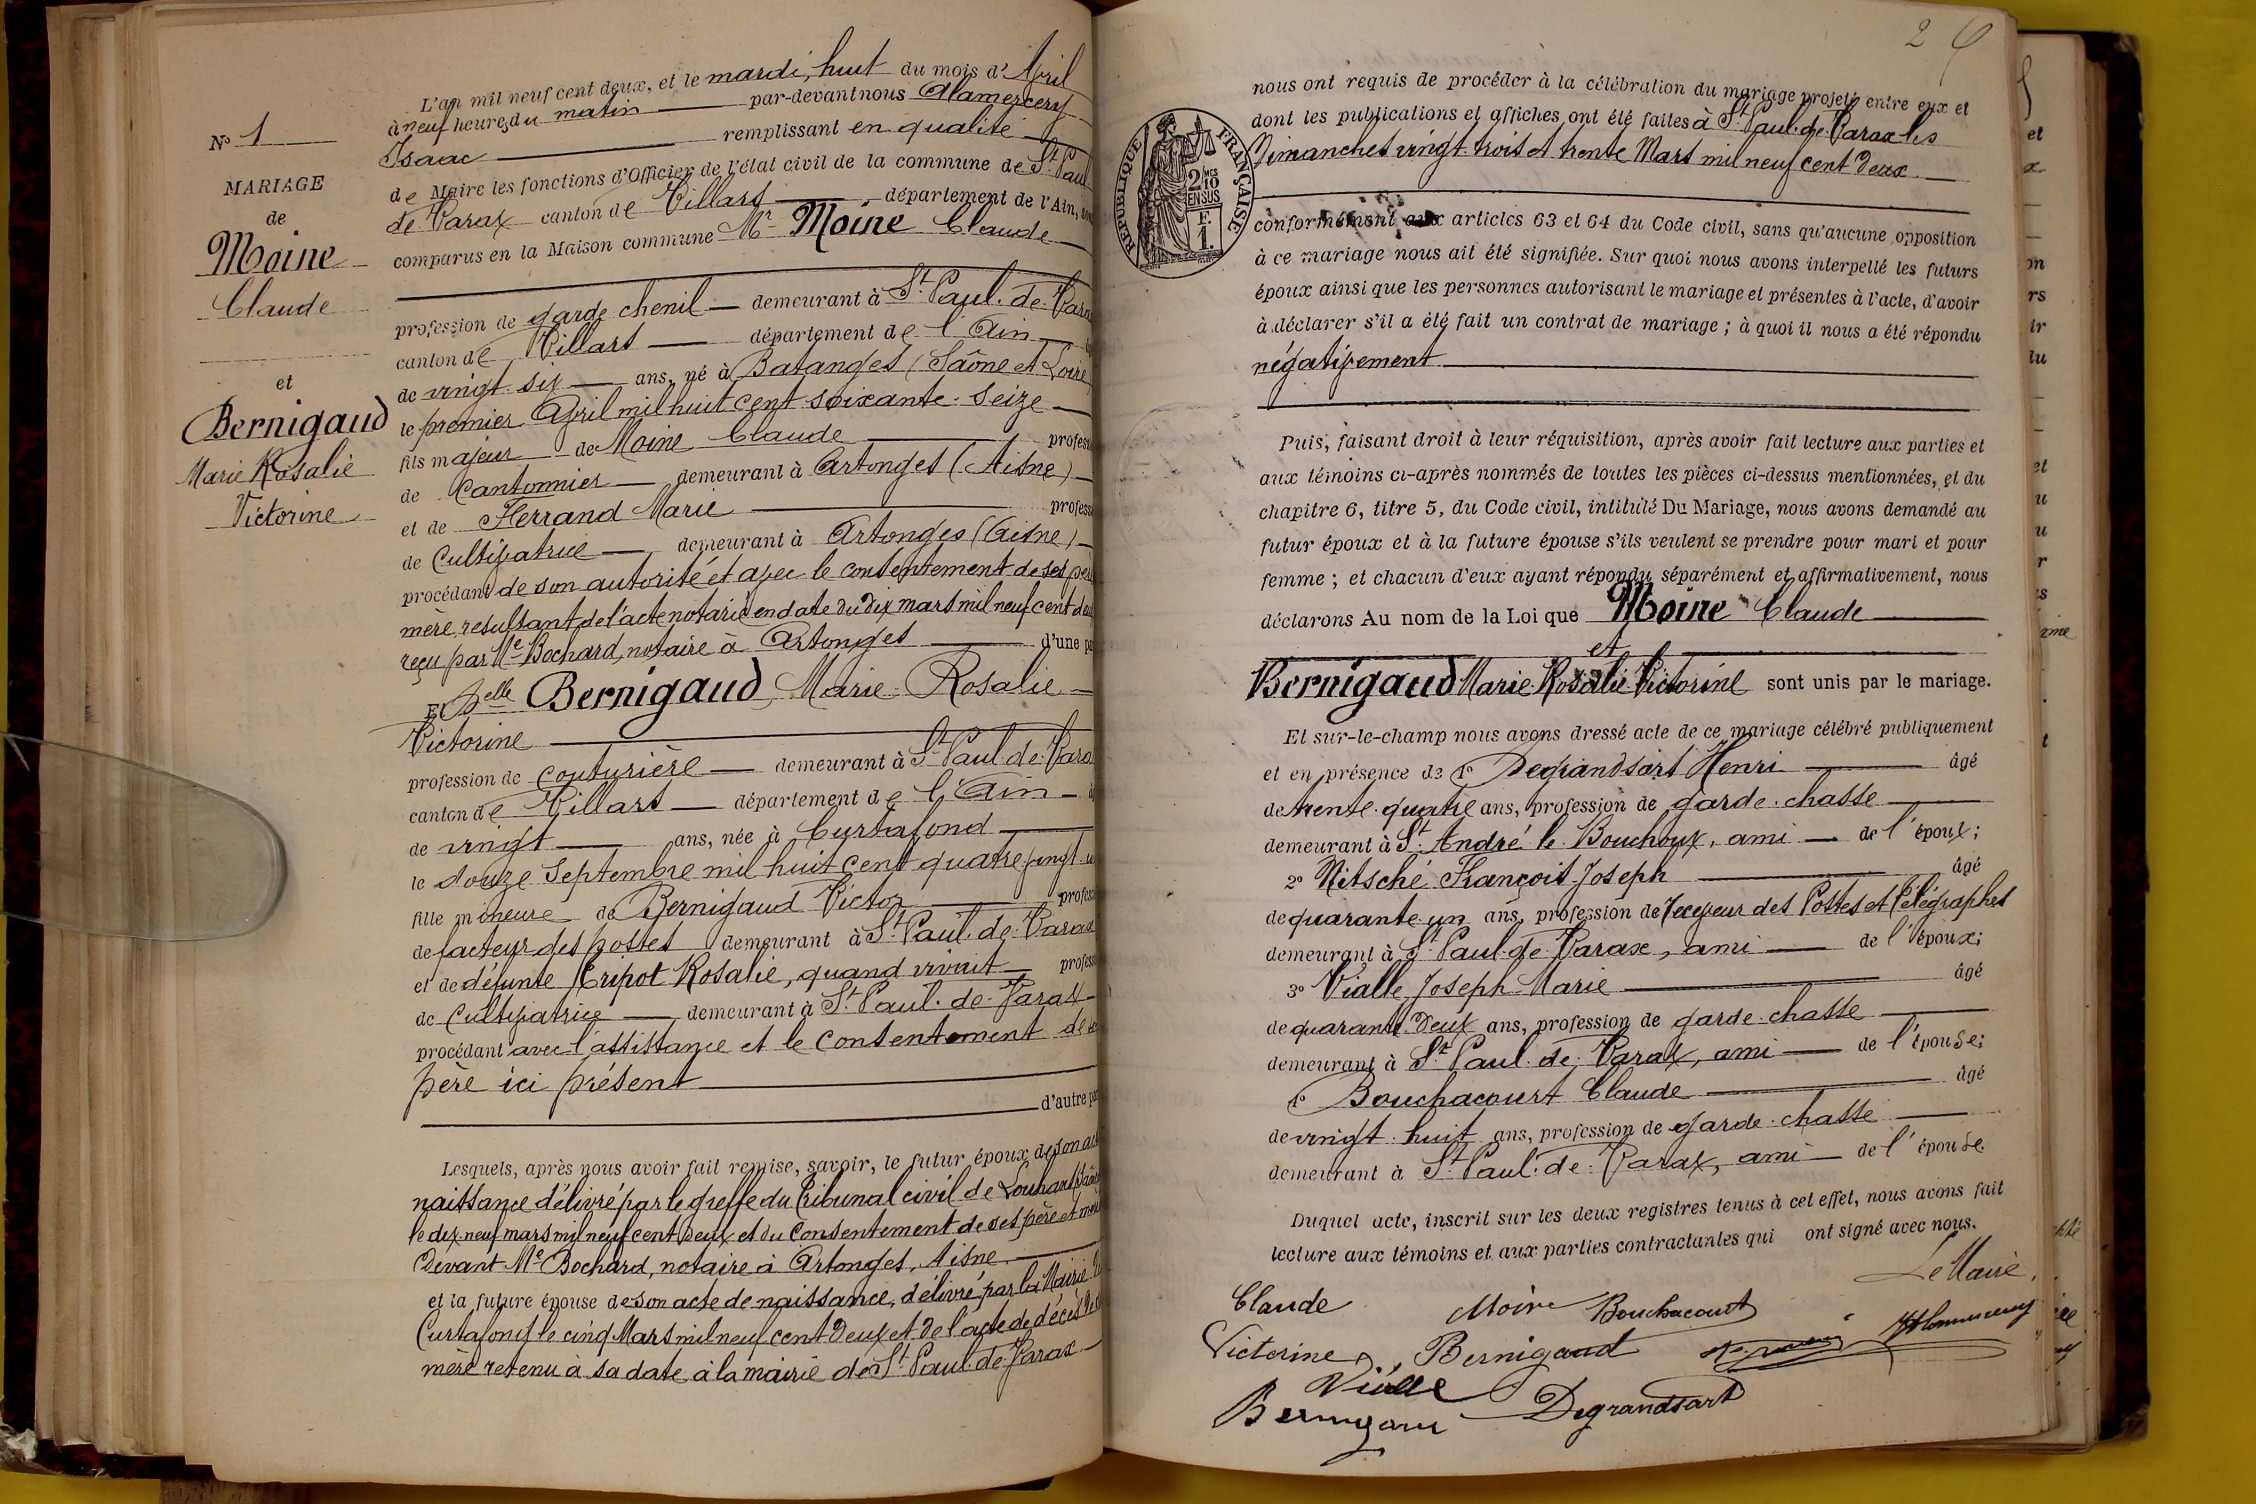 L'an mil neuf cent deux, et le mardi, huit du mois d'Avril
à neuf heures du matin par-devant nous Alamercery
Isaac remplissant en qualité
de Maire les fonctions d'Officier de l'état civil de la commune de St Paul
de Varax canton de Villars département de l'Ain,
comparus en la Maison commune Mr Moine Claude
profession de garde chenil demeurant à St Paul. de. Varax
canton de Villars département de l'Ain
de vingt-six ans, né à Batanges (Saône et Loire)
le premier Avril mil huit cent soixante-seize
fils majeur de Moine Claude
de Cantonnier demeurant à Artonges (Aisne)
et de Ferrand Marie
de Cultivatrice demeurant à Artonges (Aisne)
procédant de son autorité et avec le consentement de ses
mère, résultant de l'acte notarié en date du dix mars mil neuf cent
reçu par Me Bochard, notaire à Artonges d'une
Et Delle Bernigaud, Marie-Rosalie
Victorine
profession de couturière demeurant à St Paul-de-Varax
canton de Villars département de l'Ain
de vingt ans, née à Curtafond
le douze Septembre mil huit cent quatre-vingt
fille mineure de Bernigaud Victor
de facteur des postes demeurant à St Paul. de. Varax
et de défunte Tripot Rosalie, quand vivait
de Cultivatrice demeurant à St Paul. de. Varax
procédant avec l'assistance et le consentement de
père ici présent
d'autre
Lesquels, après nous avoir fait remise, savoir, le futur époux de son
naissance délivré par le greffe du Tribunal civil de Louhans
le dix-neuf mars mil neuf cent deux et du Consentement de ses père et
devant Me Bochard, notaire à Artonges, Aisne
et la future épouse de son acte de naissance, délivré par la Mairie
Curtafond le cinq Mars mil neuf cent deux et de l'acte de décès
mère retenu à sa date à la mairie de St Paul-de-Varax
No 1
MARIAGE
de
Moine
Claude
et
Bernigaud
Marie Rosalie
Victorine
2
nous ont requis de procéder à la célébration du mariage projeté entre eux et
dont les publications et affiches ont été faites à St Paul. de. Varax les
Dimanches vingt-trois et trente Mars mil neuf cent deux
RÉPUBLIQUE FRANÇAISE
2/10
EN SUS
F.
1.
conformément aux articles 63 et 64 du Code civil, sans qu'aucune opposition
à ce mariage nous ait été signifiée. Sur quoi nous avons interpellé les futurs
époux ainsi que les personnes autorisant le mariage et présentes à l'acte, d'avoir
à déclarer s'il a été fait un contrat de mariage ; à quoi il nous a été répondu
négativement
Puis, faisant droit à leur réquisition, après avoir fait lecture aux parties et
aux témoins ci-après nommés de toutes les pièces ci-dessus mentionnées, et du
chapitre 6, titre 5, du Code civil, intitulé Du Mariage, nous avons demandé au
futur époux et à la future épouse s'ils veulent se prendre pour mari et pour
femme ; et chacun d'eux ayant répondu séparément et affirmativement, nous
déclarons Au nom de la Loi que Moine Claude
et
Bernigaud Marie-Rosalie-Victorine sont unis par le mariage.
Et sur-le-champ nous avons dressé acte de ce mariage célébré publiquement
et en présence de 1o Degrandsart Henri âgé
de trente-quatre ans, profession de garde-chasse
demeurant à St André le Bouchoux, ami de l'époux;
2o Nitsché François-Joseph âgé
de quarante-un ans, profession de Receveur des Postes et Télégraphes
demeurant à St Paul-de-Varax, ami de l'époux;
3o Vialle Joseph-Marie âgé
de quarante-deux ans, profession de garde-chasse
demeurant à St Paul. de. Varax, ami de l'épouse;
4o Bouchacourt Claude âgé
de vingt-huit ans, profession de garde-chasse
demeurant à St Paul. de. Varax, ami de l'épouse
Duquel acte, inscrit sur les deux registres tenus à cet effet, nous avons fait
lecture aux témoins et aux parties contractantes qui ont signé avec nous.
Le Maire,
Claude Moine Bouchacourt
Victorine Bernigaud
Vialle
Bernigaud Degrandsart